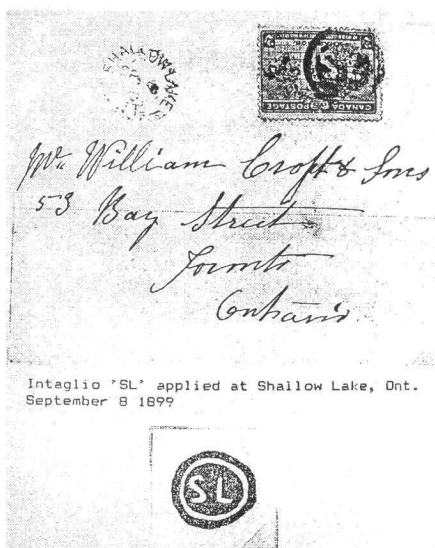 SHALLOW LAKE
CANADA POSTAGE
Mr. William Croft & Sons
53 Bay Street
Toronto
Ontario
Intaglio 'SL' applied at Shallow Lake, Ont.
September 8 1899
SL